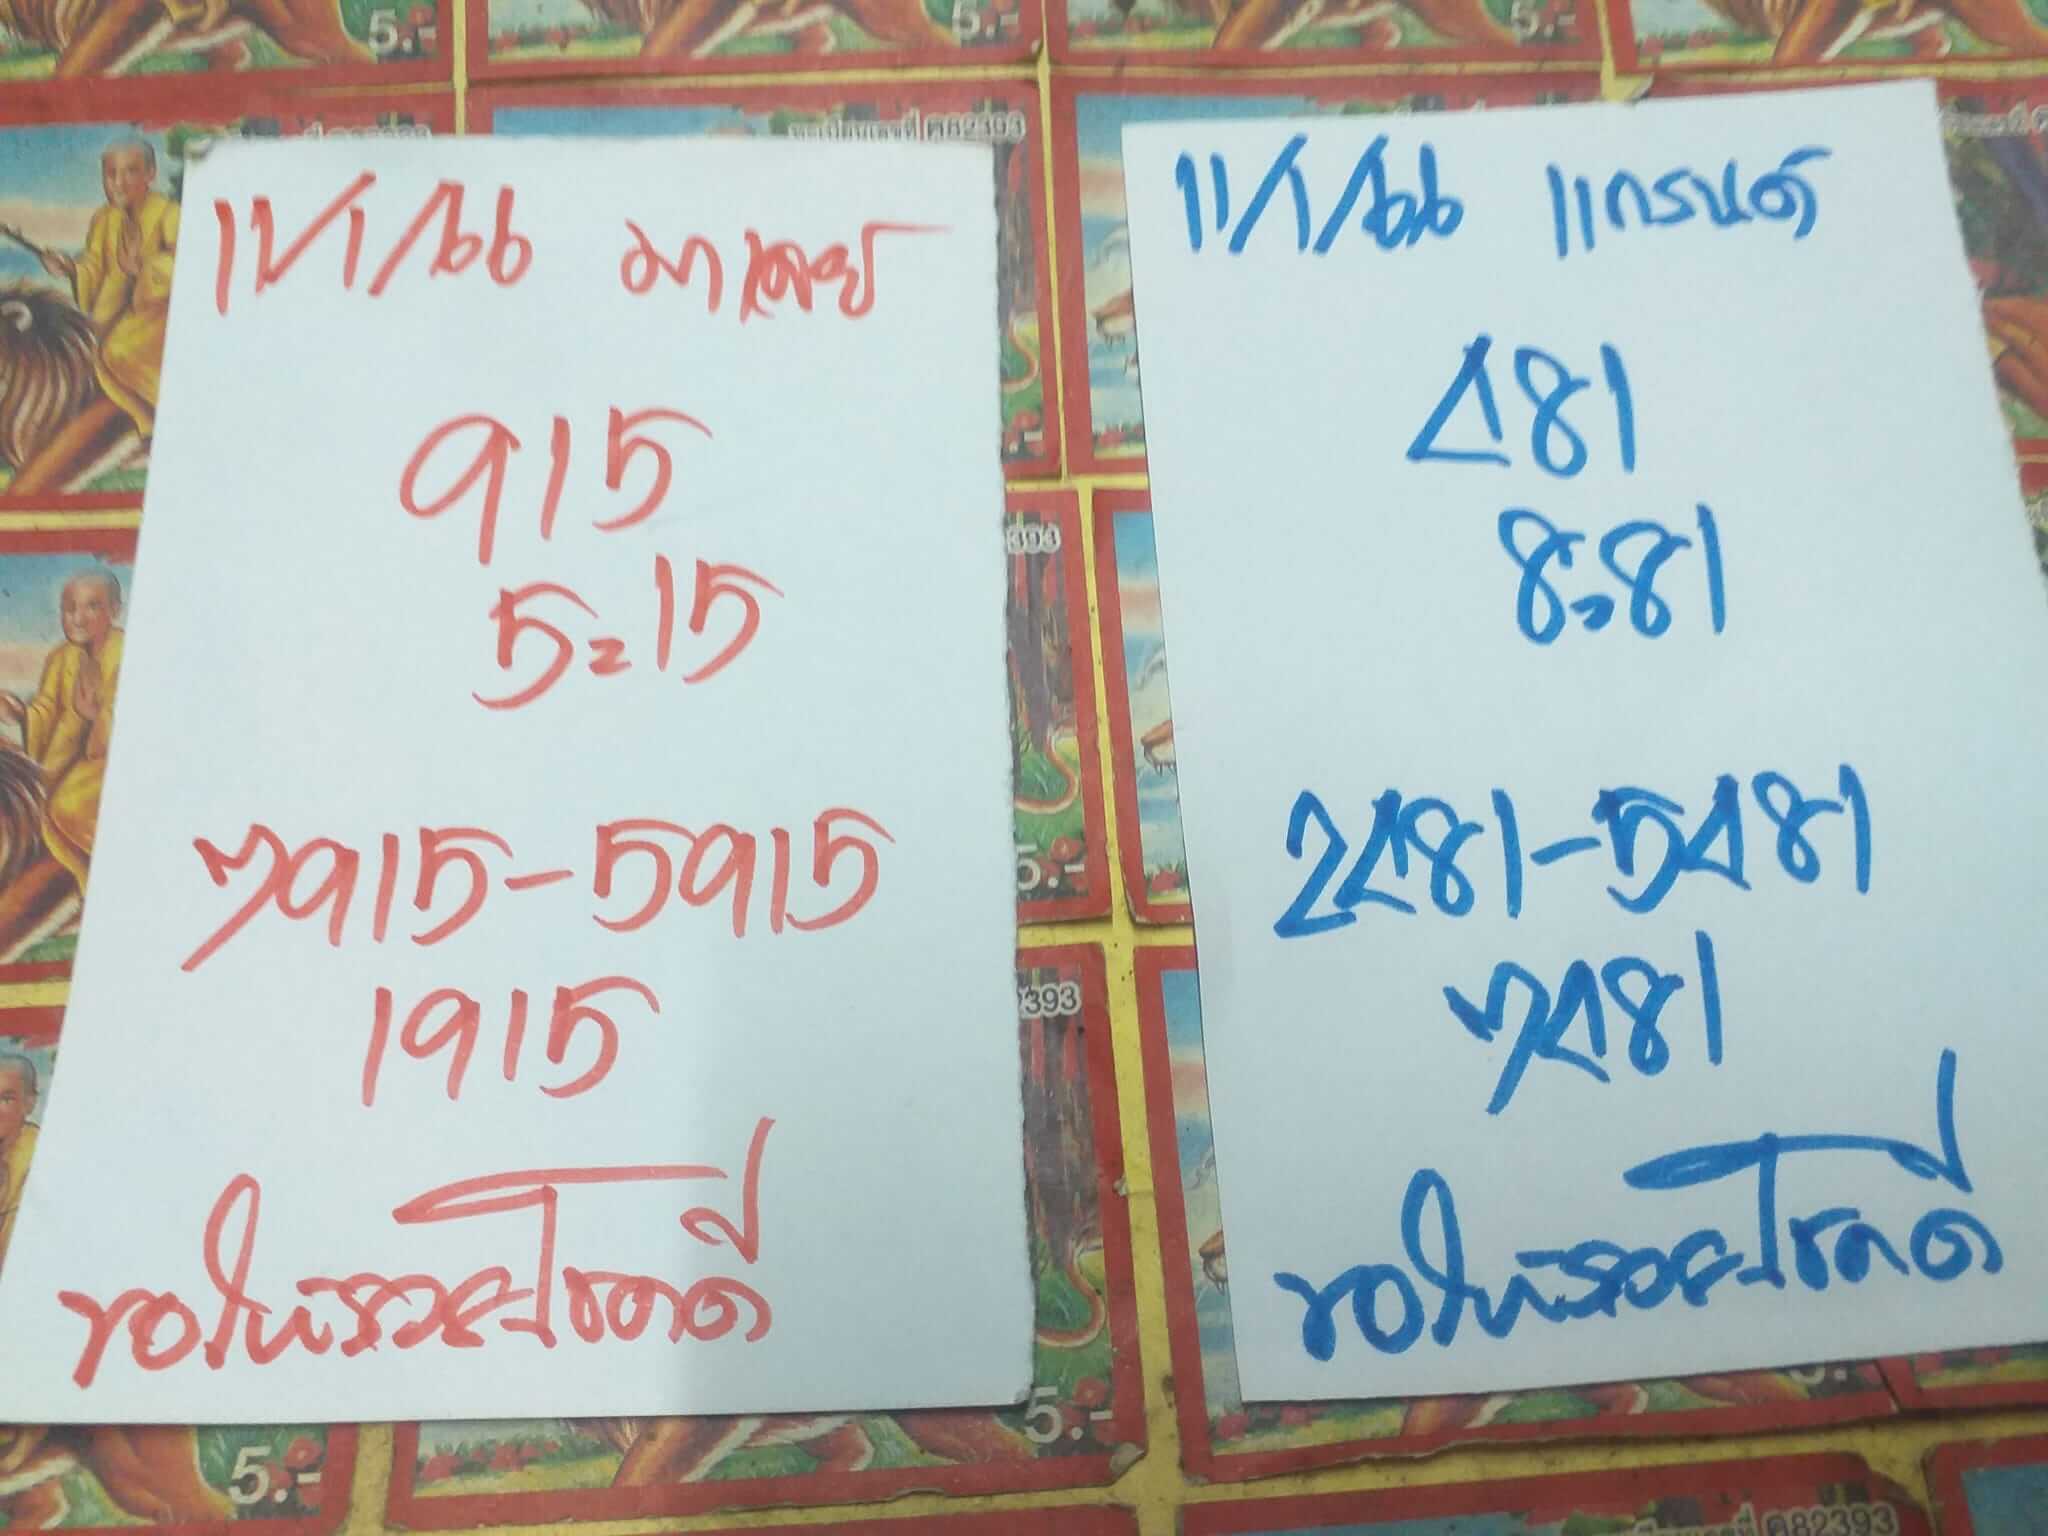 11/1/66 มาเลย์
915
5=15
7915-5915
1915
ขอให้รวยโชคดี
11/1/66 แกรนด์
481
8=81
2481-5481
7481
ขอให้รวยโชคดี
5.-
5.-
5.-
5.-
ค82393
2393
2393
5.-
5.-
5.-
ค82393